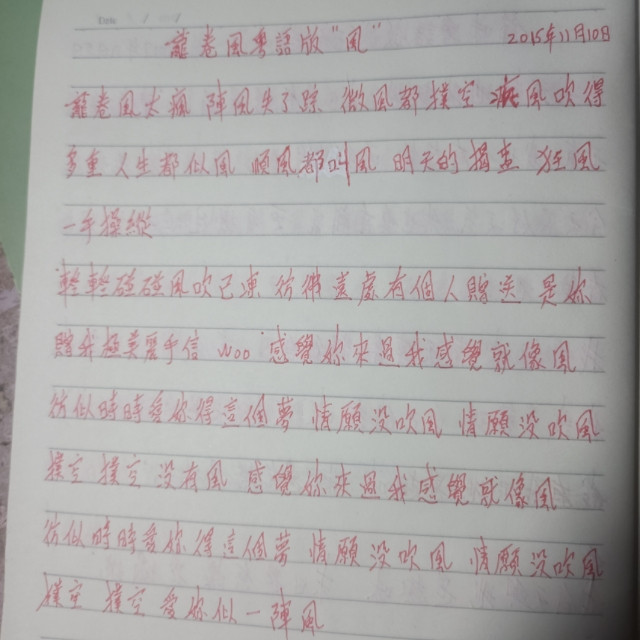 龍卷風粵語版"風" 2015年11月10日
龍卷風太瘋 陣風失了踪 微風都撲空 風吹得
多重 人生都似風 順風都叫風 明天的掩蓋 狂風
一手操縱
輕輕碰碰風吹已凍 彷彿處有個人贈送 是你
贈我極美手信 woo 感覺你來過我感覺就像風
彷似時時愛你得這個夢 情願没吹風 情願没吹風
撲空 撲空 没有風 感覺你來過我感覺就像風
彷似時時愛你得這個夢 情願没吹風 情願没吹風
撲空 撲空 愛你似一陣風